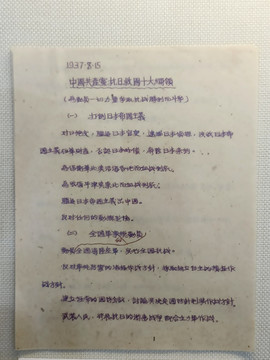 1937·8·15
中國共產黨抗日救國十大綱領
(為動員一切力量爭取抗戰勝利而鬥爭)
(一) 打倒日本帝國主義
對日絕交，驅逐日本官吏，逮捕日本偵探，沒收日本帝
國主義在華財產，否認日本外債，
為保衛華北與沿海各地而血戰到底。
為收復平津與東北而血戰到底。
驅逐日本帝國主義出中國。
反對任何的動搖妥協。
(二) 全國軍事總動員
動員全國海陸空軍，實行全國抗戰。
反對單純防禦的消極作戰方針，採取獨立自主的積極作
戰方針。
建立經常的國防會議，討論與決定國防計劃與作戰方針。
武裝人民，發展抗日的游擊戰爭配合主力軍作戰。
1